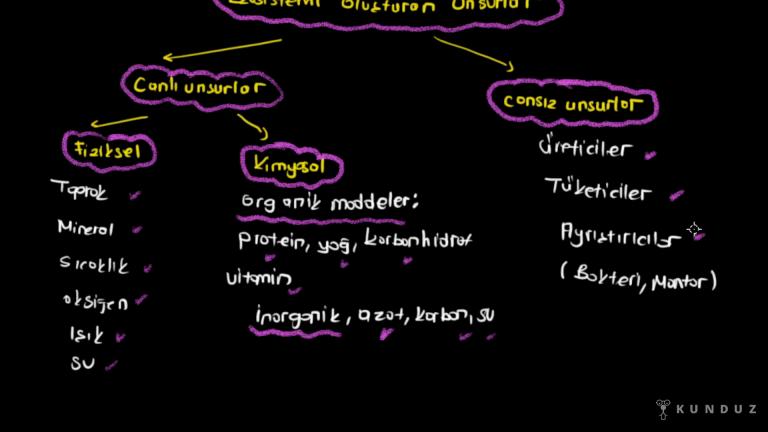 Ekosistemi Oluşturan Unsurlar
Canlı unsurlar
Cansız unsurlar
Fiziksel
Kimyasal
Toprak
Mineral
Sıcaklık
oksijen
Işık
SU
organik maddeler:
protein, yağ, karbonhidrat
vitamin
inorganik, azot, karbon, su
Üreticiler
Tüketiciler
Ayrıştırıcılar
(Bakteri, Mantar)
KUNDUZ